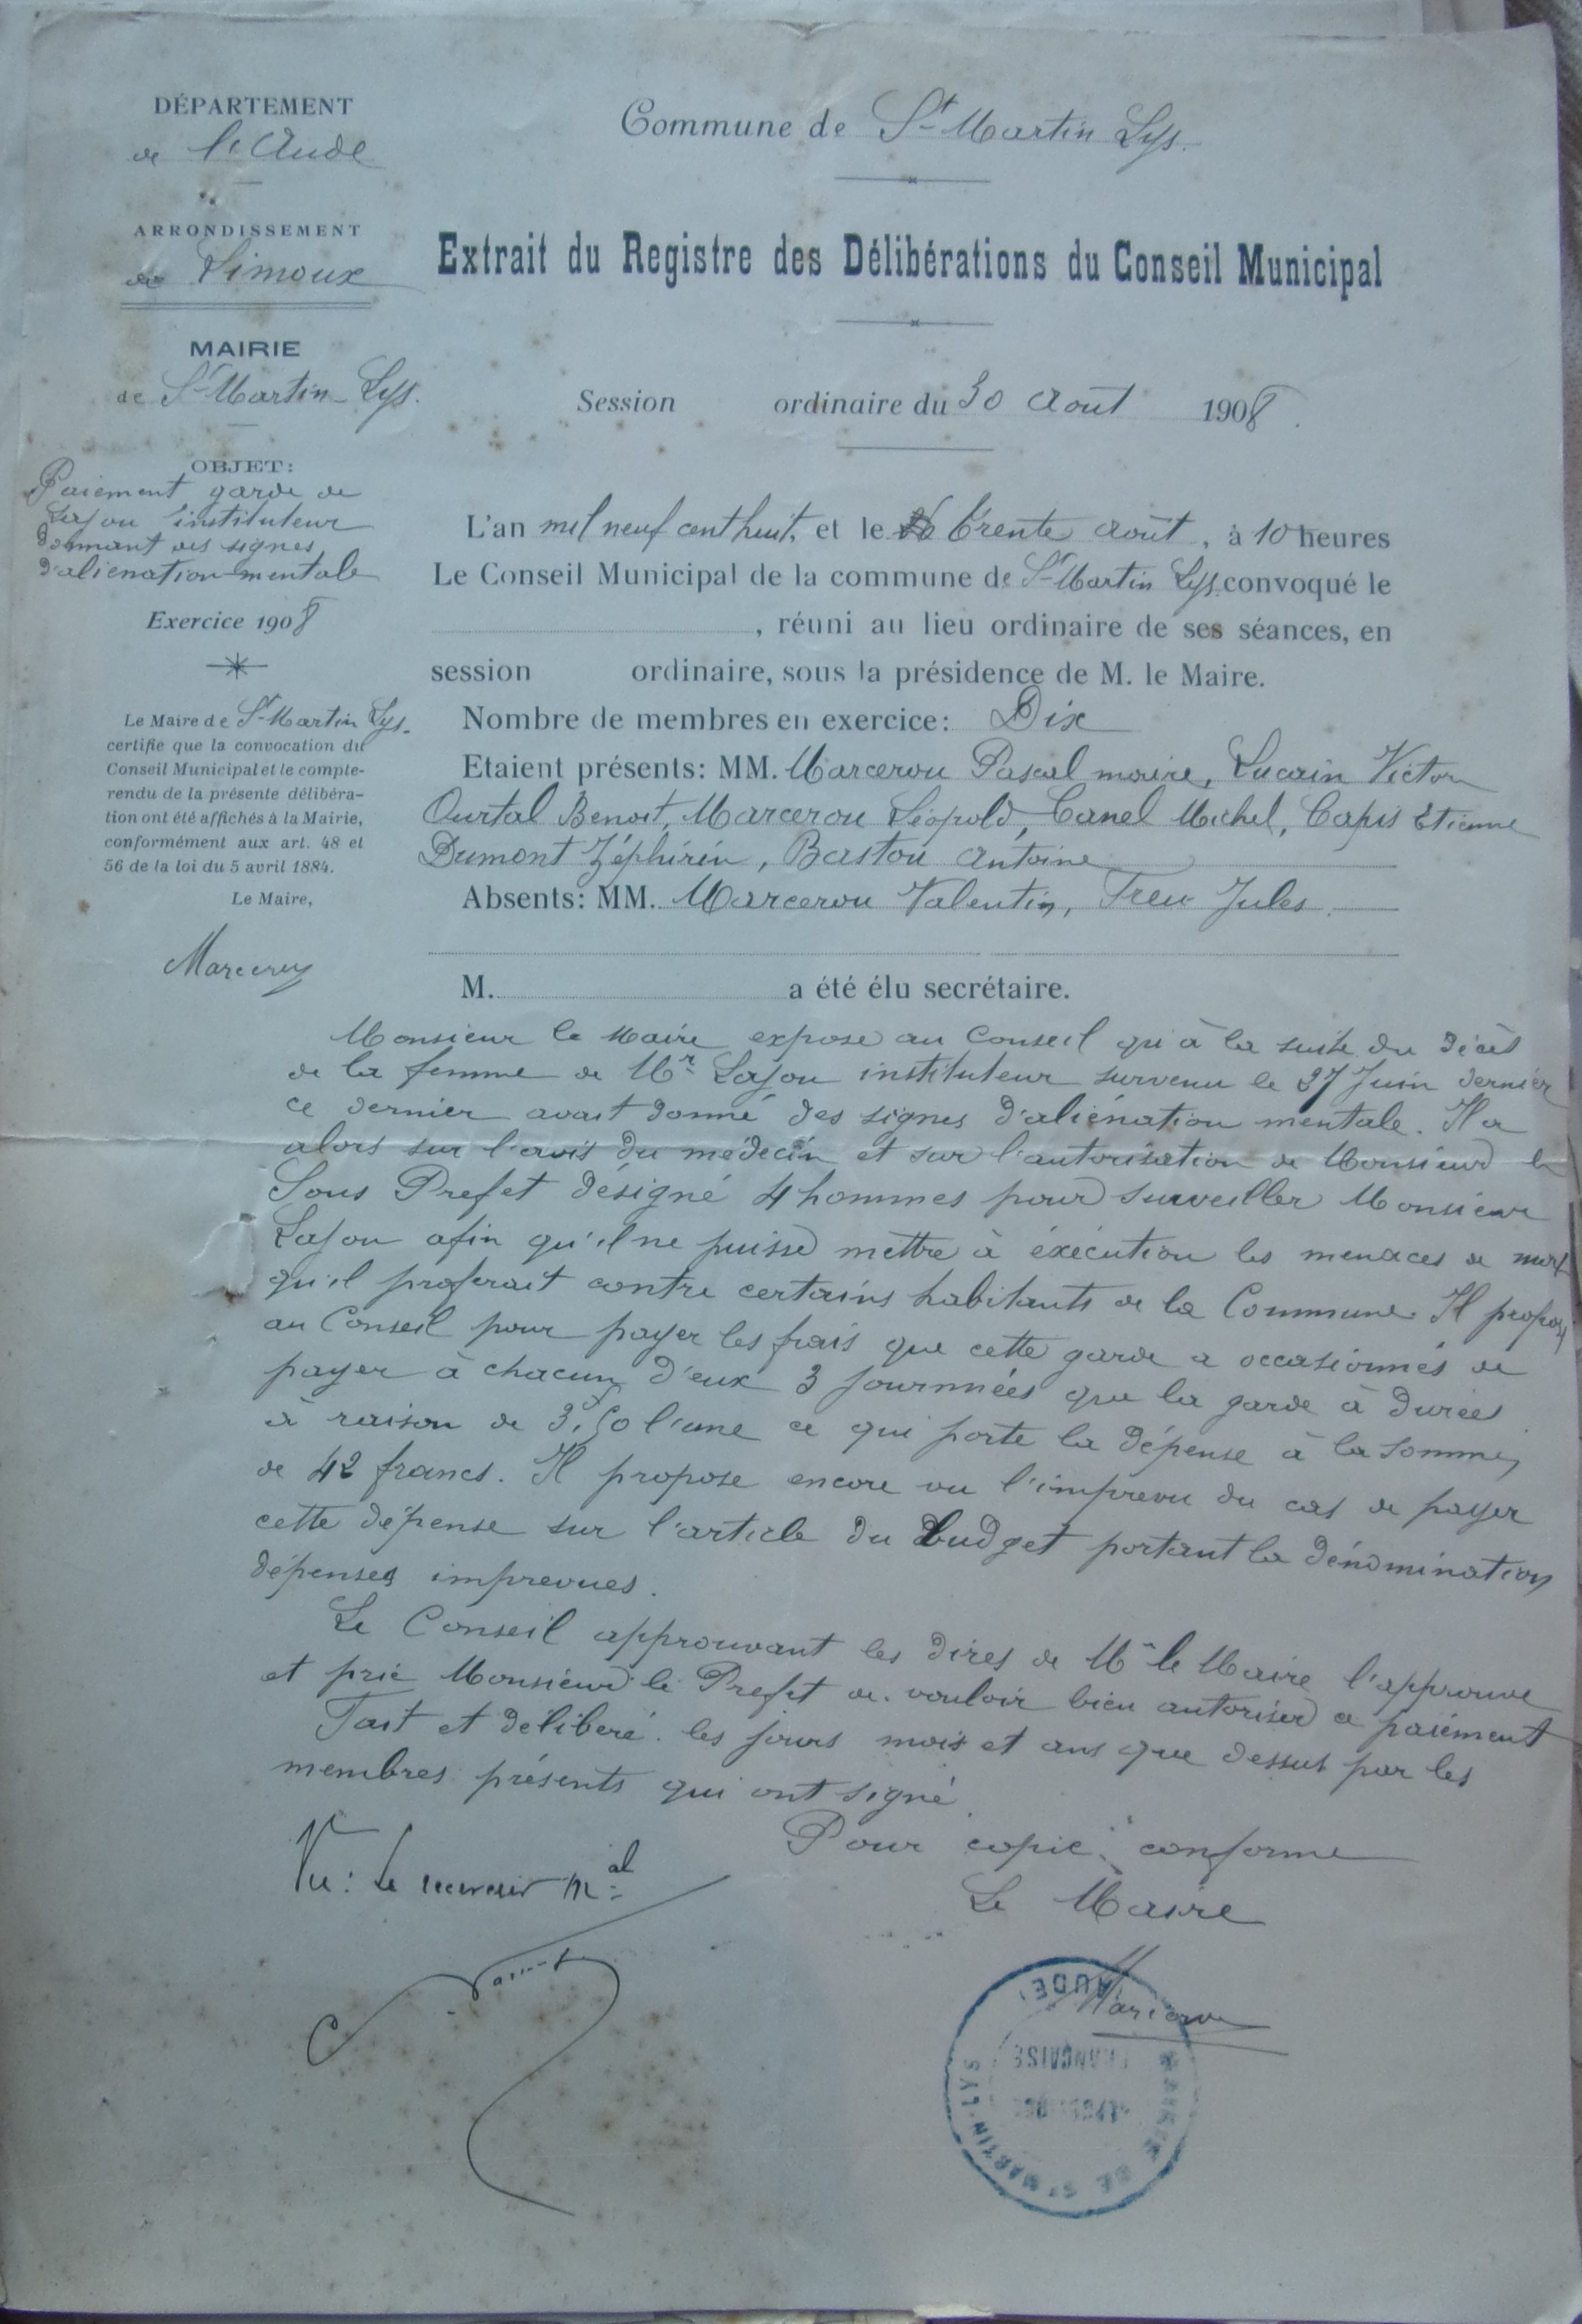 DÉPARTEMENT
de l'Aude
ARRONDISSEMENT
de Limoux
MAIRIE
de St Martin Lys.
OBJET:
Paiement garde de
Lajou instituteur
donnant des signes
d'aliénation mentale
Exercice 1908
Le Maire de St Martin Lys.
certifie que la convocation du
Conseil Municipal et le compte-
rendu de la présente délibéra-
tion ont été affichés à la Mairie,
conformément aux art. 48 et
56 de la loi du 5 avril 1884.
Le Maire,
Marcerou
Commune de St Martin Lys.
Extrait du Registre des Délibérations du Conseil Municipal
Session ordinaire du 30 Août 1908.
L'an mil neuf cent huit, et le trente août, à 10 heures
Le Conseil Municipal de la commune de St Martin Lys. convoqué le
, réuni au lieu ordinaire de ses séances, en
session ordinaire, sous la présidence de M. le Maire.
Nombre de membres en exercice: Dix
Etaient présents: MM. Marcerou Pascal maire, Lucain Victor
Ourtal Benoit, Marcerou Léopold, Canel Michel, Capis Etienne
Dumont Zéphirin, Bastou Antoine
Absents: MM. Marcerou Valentin, Treu Jules.
M. a été élu secrétaire.
Monsieur le Maire expose au Conseil qu'à la suite du décès
de la femme de Mr Lajou instituteur survenu le 27 Juin dernier
ce dernier avait donné des signes d'aliénation mentale. Il a
alors sur l'avis du médecin et sur l'autorisation de Monsieur le
Sous Prefet désigné 4 hommes pour surveiller Monsieur
Lajou afin qu'il ne puisse mettre à éxécution les menaces de mort
qu'il proferait contre certains habitants de la Commune. Il propose
au Conseil pour payer les frais que cette garde a occasionnés de
payer à chacun d'eux 3 journnées que la garde à durées
à raison de 3f,50 l'une ce qui porte la dépense à la somme
de 42 francs. Il propose encore vu l'imprevu du cas de payer
cette dépense sur l'article du budget portant la dénomination
dépenses imprevues.
Le Conseil approuvant les dires de Mr le Maire l'approuve
et prie Monsieur le Prefet de vouloir bien autoriser ce paiément
Fait et délibéré les jours mois et ans que dessus par les
membres présents qui ont signé
Pour copie conforme
Vu: Le receveur Mal
Le Maire
Marcerou
AUDE
MAIRIE DE ST MARTIN-LYS
FRANÇAISE